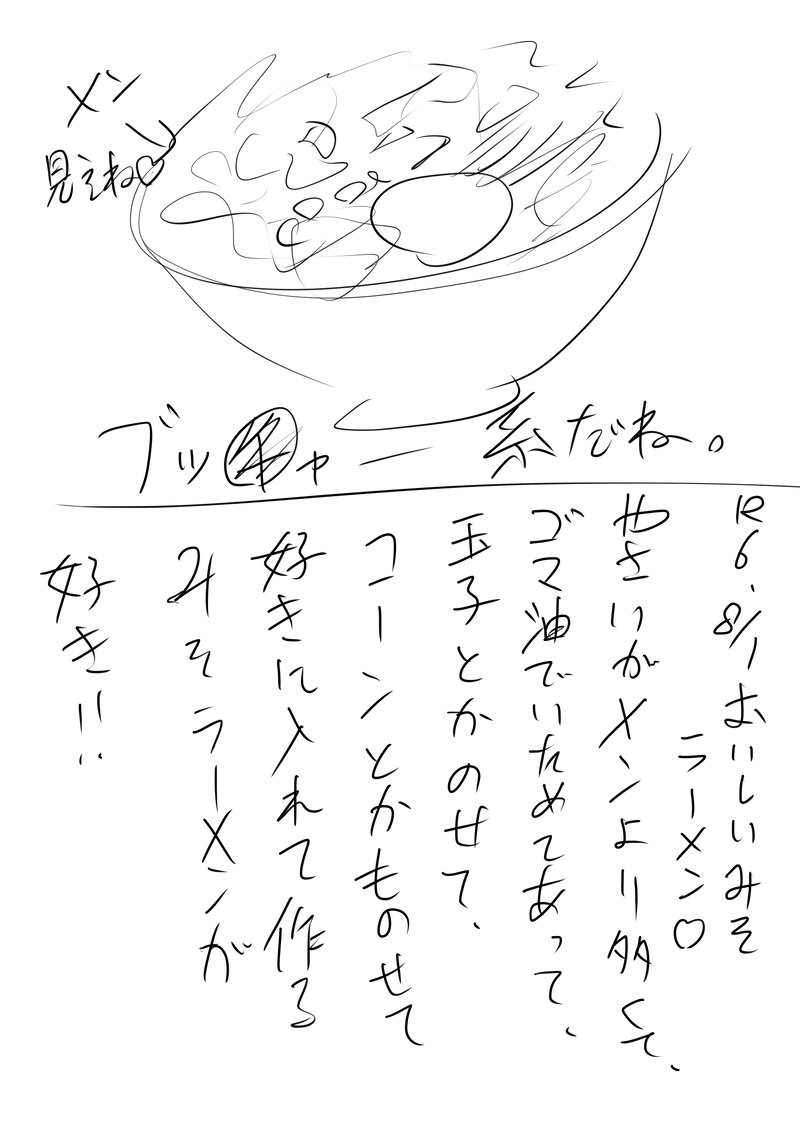 メン
見えね♡
ブッチャー系だね。
R6.8/1おいしいみそ
ラーメン♡
やさいがメンより多くて、
ゴマ油でいためてあって、
玉子とかのせて、
コーンとかものせて
好きに入れて作る
みそラーメンが
好き!!